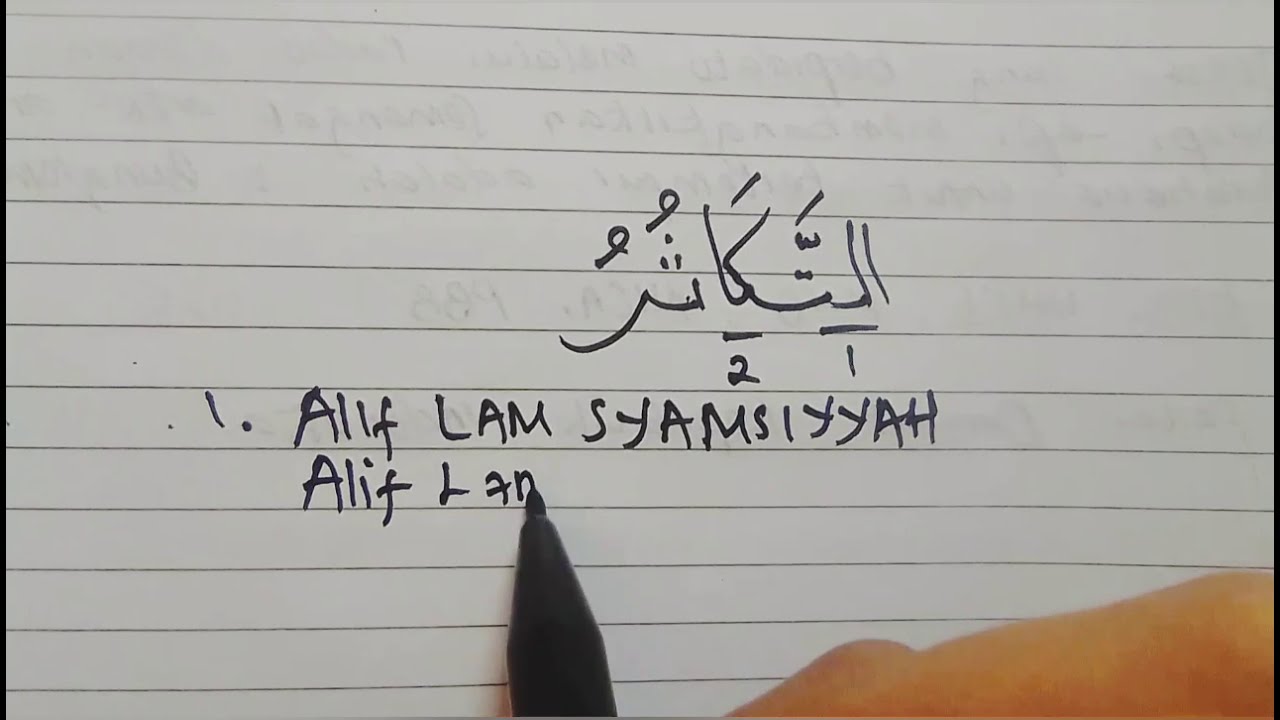 التَّكَاثُرُ
2 1
1. Alif LAM SYAMSIYYAH
Alif